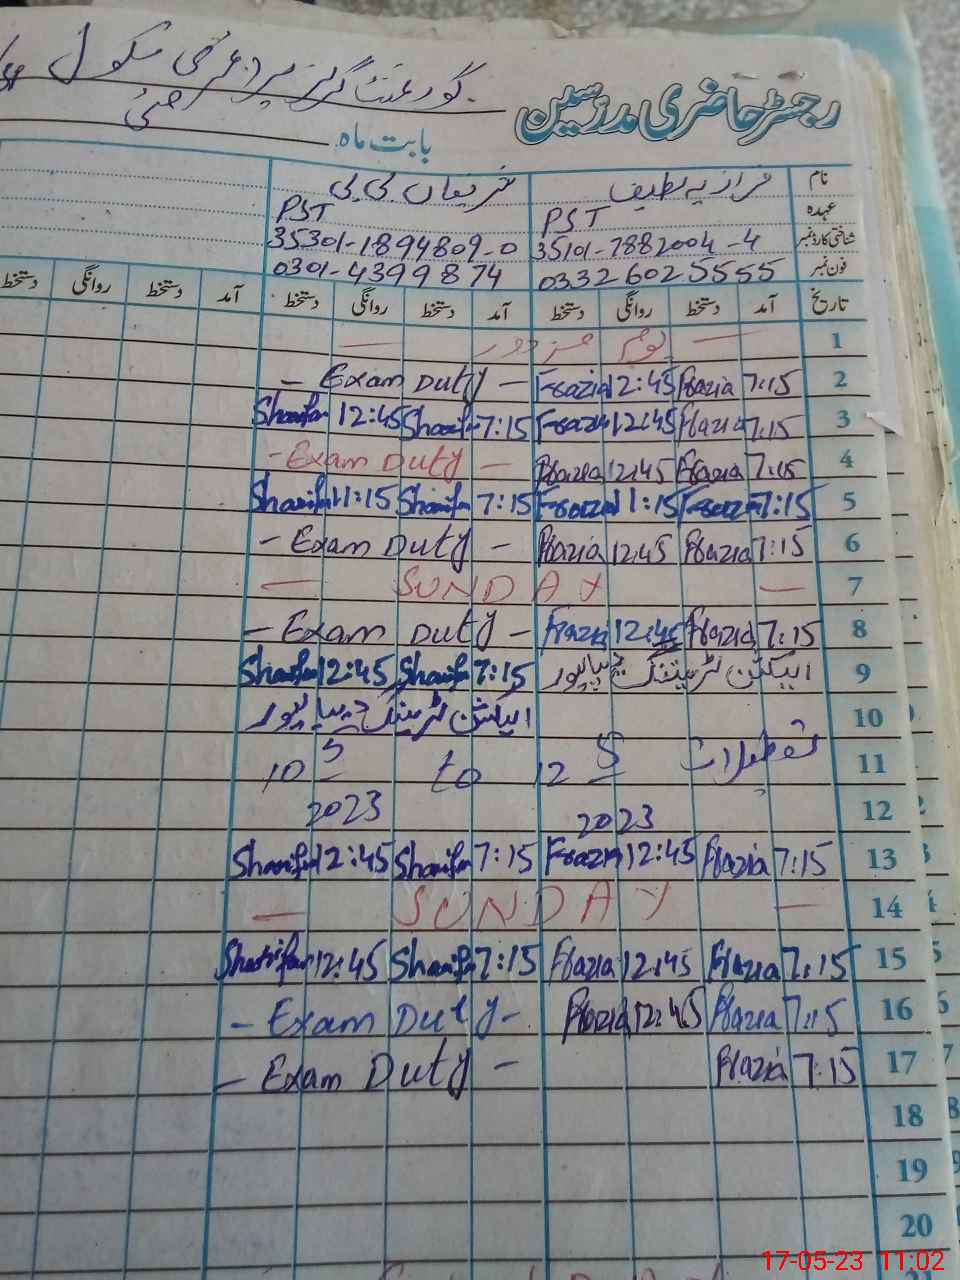 گورنمنٹ گرلز پرائمری سکول
رجسٹر حاضری مدرسین
بابت ماہ مئی
نام فرازیہ لطیف شریفاں بی بی
عہدہ PST PST
شناختی کارڈ نمبر 35101-7882004-4 35301-1894809-0
فون نمبر 03326025555 0301-4399874
تاریخ آمد دستخط روانگی دستخط آمد دستخط روانگی دستخط آمد دستخط روانگی دستخط
1 — یوم مزدور —
2 7:15 Frazia 12:45 Frazia - Exam Duty -
3 7:15 Frazia 12:45 Frazia 7:15 Sharifan 12:45 Sharifan
4 7:15 Frazia 12:45 Frazia - Exam Duty -
5 7:15 Frazia 11:15 Frazia 7:15 Sharifan 11:15 Sharifan
6 7:15 Frazia 12:45 Frazia - Exam Duty -
7 — SUNDAY —
8 7:15 Frazia 12:45 Frazia - Exam Duty -
9 الیکشن ٹریننگ دیپالپور 7:15 Sharifan 12:45 Sharifan
10 الیکشن ٹریننگ دیپالپور
11 تعطیلات 10 5 to 12 5
12 2023 2023
13 7:15 Frazia 12:45 Frazia 7:15 Sharifan 12:45 Sharifan
14 — SUNDAY —
15 7:15 Frazia 12:45 Frazia 7:15 Sharifan 12:45 Sharifan
16 7:15 Frazia 12:45 Frazia - Exam Duty -
17 7:15 Frazia - Exam Duty -
18
19
20
17-05-23 11:02